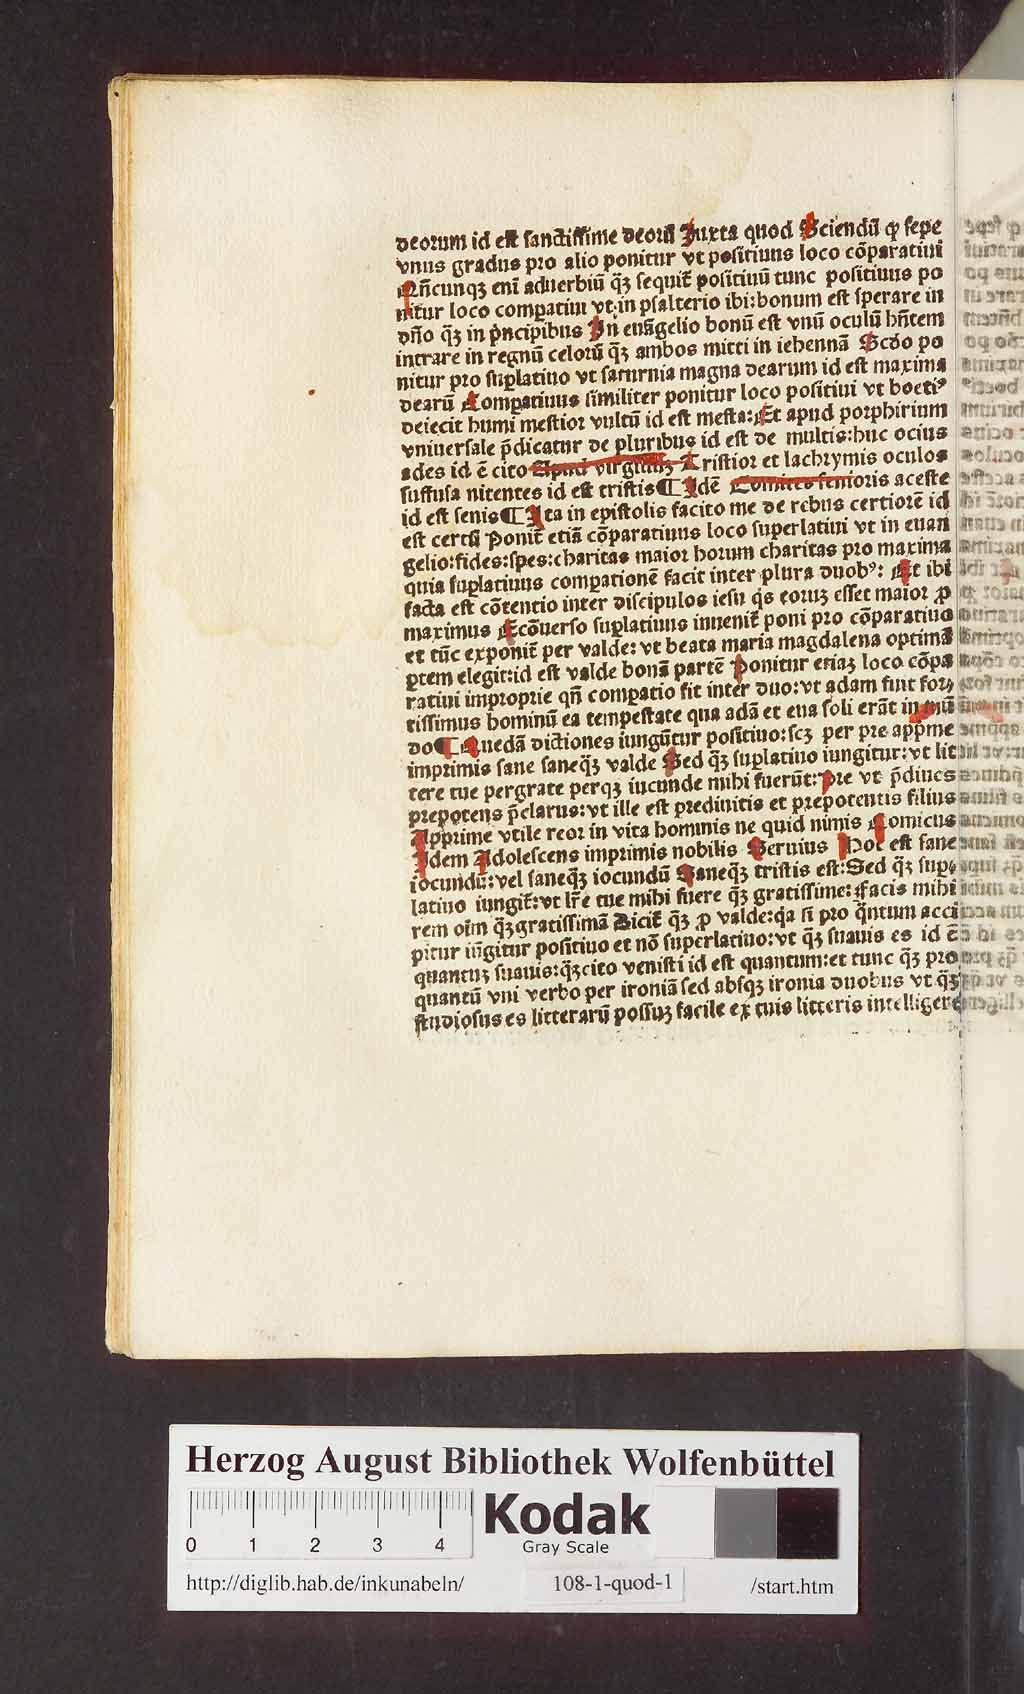 deorum id est sanctissime deorū Iuxta quod Sciendū ꝙ sepe
vnus gradus pro alio ponitur vt positiuus loco cōparatiui
Qn̄cunqꝫ eni aduerbiū q̄ꝫ sequit᷑ positiuū tunc positiuus po
nitur loco comꝑatiui vt:in psalterio ibi:bonum est sperare in
dn̄o q̄ꝫ in pͥncipibus In euāgelio bonū est vnū oculū hn̄tem
intrare in regnū celorū q̄ꝫ ambos mitti in iehennā Scd̄o po
nitur pro suꝑlatiuo vt saturnia magna dearum id est maxima
dearū Comꝑatiuus similiter ponitur loco positiui vt boetiꝰ
deiecit humi mestior vultū id est mesta: Et apud porphirium
vniuersale p̄dicatur de pluribus id est de multis:huc ocius
ades id ē cito Apud virgiliuꝫ Tristior et lachrymis oculos
suffusa nitentes id est tristis ¶ Idē Comites senioris aceste
id est senis ¶ Ita in epistolis facito me de rebus certiorē id
est certū Ponit᷑ etiā cōparatiuus loco superlatiui vt in euan
gelio:fides:spes:charitas maior horum charitas pro maxima
quia suꝑlatiuus comꝑationē facit inter plura duobꝰ: Et ibi
facta est cōtentio inter discipulos iesu qͥs eoruꝫ esset maior ꝓ
maximus Ecōuerso suꝑlatiuus inuenit᷑ poni pro cōparatiuo
et tūc exponit᷑ per valde: vt beata maria magdalena optimā
ꝑtem elegit:id est valde bonā partē Ponitur etiaꝫ loco cōpa
ratiui improprie qn̄ comꝑatio fit inter duo:vt adam fuit for⸗
tissimus hominū ea tempestate qua adā et eua soli erāt in mū
do ¶ Quedā dictiones iungūtur positiuo:scꝫ per pre appͥme
imprimis sane saneq̄ꝫ valde Sed q̄ꝫ suꝑlatiuo iungitur:vt lit
tere tue pergrate perqꝫ iucunde mihi fuerūt: Pre vt p̄diues
prepotens p̄clarus:vt ille est prediuitis et prepotentis filius
Apprime vtile reor in vita hominis ne quid nimis Comicus
Idem Adolescens imprimis nobilis Seruius Hoc est sane
iocundū:vel saneq̄ꝫ iocundū Saneq̄ꝫ tristis est:Sed q̄ꝫ suꝑ⸗
latiuo iungit᷑:vt lr̄e tue mihi fuere q̄ꝫ gratissime: Facis mihi
rem oīm q̄ꝫgratissimā Dicit᷑ q̄ꝫ ꝓ valde:qͣ si pro qͣntum acci
pitur iūgitur positiuo et nō superlatiuo:vt q̄ꝫ suauis es id ē
quantuꝫ suauis:q̄ꝫcito venisti id est quantum:et tunc q̄ꝫ pro
quantū vni verbo per ironiā sed absqꝫ ironia duobus vt q̄ꝫ
studiosus es litterarū possuꝫ facile ex tuis litteris intelligere
Herzog August Bibliothek Wolfenbüttel
0 1 2 3 4
Kodak
Gray Scale
http://diglib.hab.de/inkunabeln/ 108-1-quod-1 /start.htm